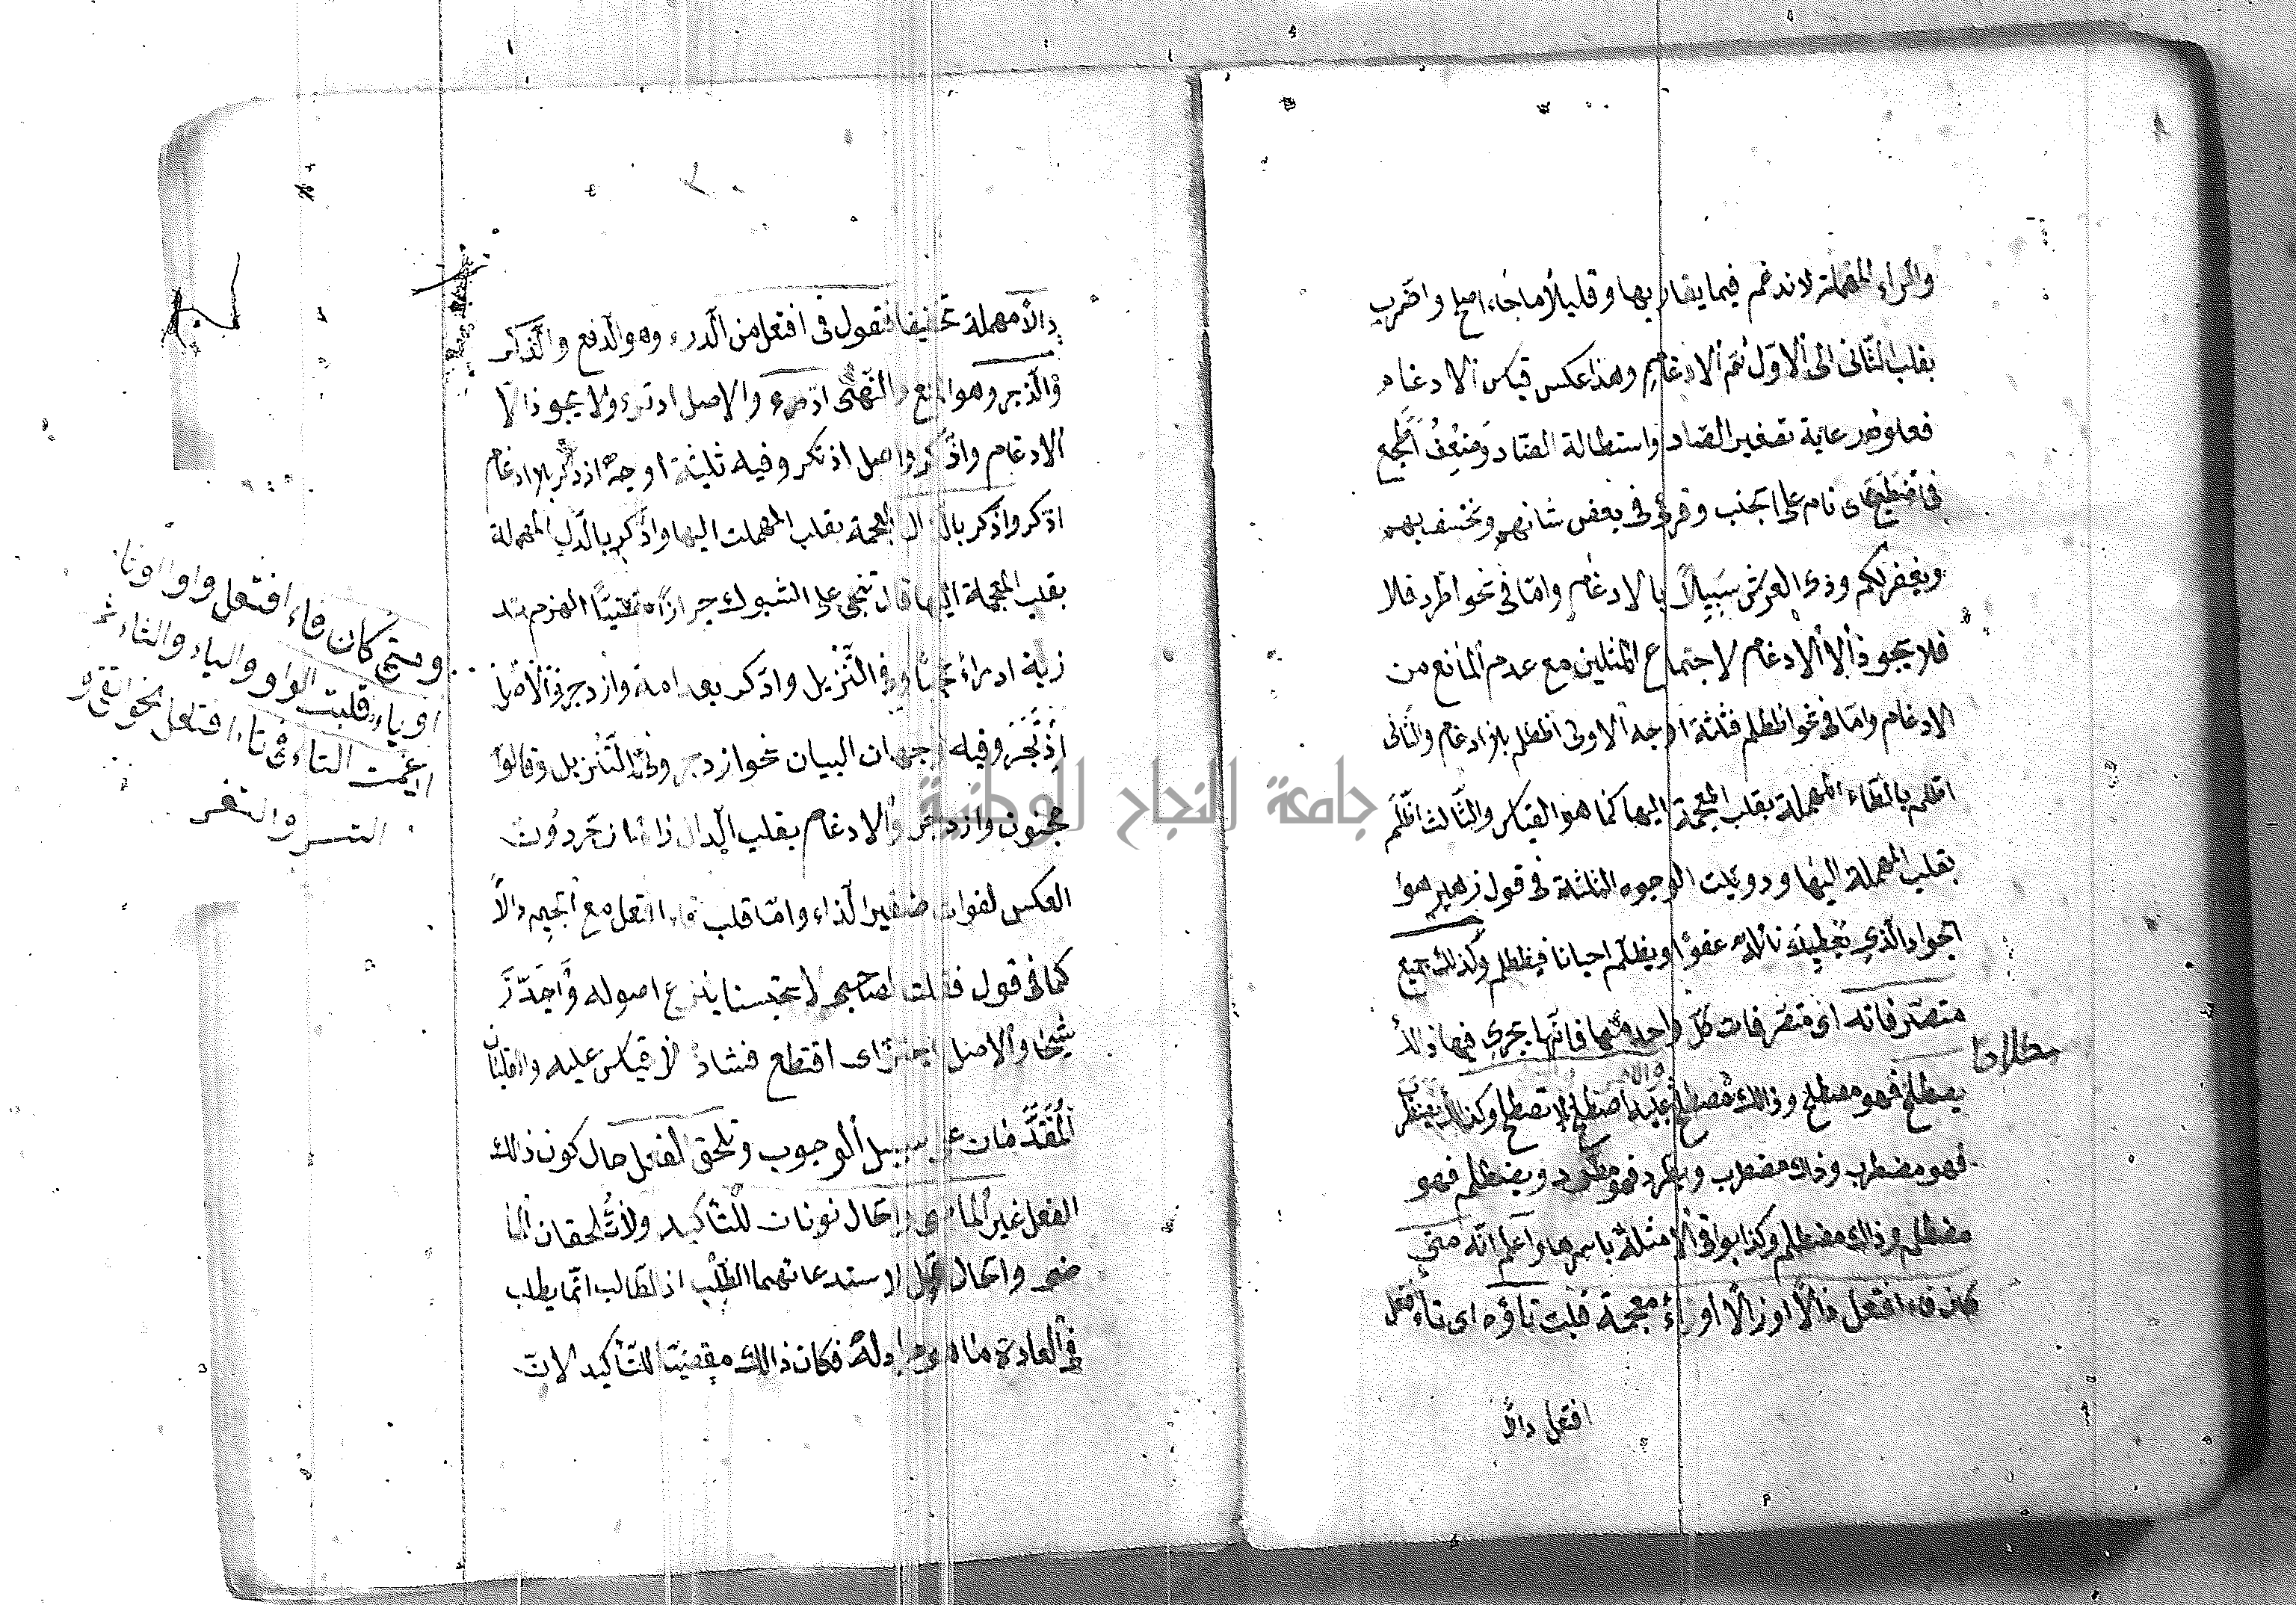 والراء المهملة لا تدغم فيما يقاربها وقليلا ما جاء اصلح واضرب
بقلب الثاني الى الاول ثم الادغام وهذا عكس قياس الادغام
فعلوه رعاية تصغير الصاد واستطالة الضاد وضعف اطجع
في اضطجع اى نام على الجنب وقرئ في بعض شانهم ونخسف بهم
ويغفر لكم وذى العرش سبيلا بالادغام واما في نحو اطرد فلا
فلا يجوذ الا الادغام لاجتماع المثلين مع عدم المانع من
الادغام واما في نحو اظطلم فثلثة اوجه الاولى اظطلم بلا ادغام والثاني
اطلم بالطاء المهملة بقلب المعجمة اليها كما هو القياس والثالث اظلم
بقلب المهملة اليها ورويت الوجوه الثلثة في قول زهير هوا
الجواد الذي يعطيك نائله عفوا ويظلم احيانا فيظطلم وكذلك جميع
متصرفاته اى متصرفات كل واحد منها فانها يجري فيها ذلك
يصطلح فهو مصطلح وذالك مصطلح عليه اصطلح لا تصطلح وكذالك يضطرب
فهو مضطرب وذاك مضطرب ويطرد فهو مطرد ويضطلم فهو
مضطلم وذاك مضطلم وكذا بواقى الامثلة باسرها واعلم انه متى
كان فاء افتعل دالا او ذالا او زاء معجمة قلبت تاؤه اى تاء افتعل
افتعل دالا
دالا مهملة تخفيفا فتقول في افتعل من الدرء وهو الدفع والذكر
والزجر وهو المنع والنهى ادرء والاصل ادترء ولا يجوذ الا
الادغام واذكر واصل اذتكر وفيه ثلثة اوجه اذدكر بلا ادغام
اذكر واذكر بالذال المعجمة بقلب المهملة اليها وادكر بالدال المهملة
بقلب المعجمة اليها قال تنحى على الشوك جرازا مقضبا الهرم تذ
ريه ادراء عجبا وفي التنزيل وادكر بعد امة وازدجر في الاصل
ازتجر وفيه وجهان البيان نحو ازدجر وفي التنزيل وقالوا
مجنون وازدجر والادغام بقلب الدال زاء نحو ازجر دون
العكس لفوات صفير الزاء واما قلب تاء افتعل مع الجيم دالا
كما في قول فقلت لصاحبي لا تحبسنا بنزع اصوله واجدز
شيحا والاصل اجتز اى اقتطع فشاذ لا قياس عليه والقلبان
المقدمان على سبيل الوجوب وتلحق الفعل حال كون ذالك
الفعل غير الماضى والحال نونات للتأكيد ولا تلحقان الما
ضى والحال لاستدعائهما الطلب اذ الطالب انما يطلب
في العادة ما هو مراد له فكان ذالك مقتضيا للتأكيد لان
ومتى كان فاء افتعل واوا او تاء
او ياء قلبت الواو والياء والثاء تاء ثم
ادغمت التاء في تاء افتعل نحو اتقى و
اتسر واتغر
مطلا
جامعة النجاح الوطنية